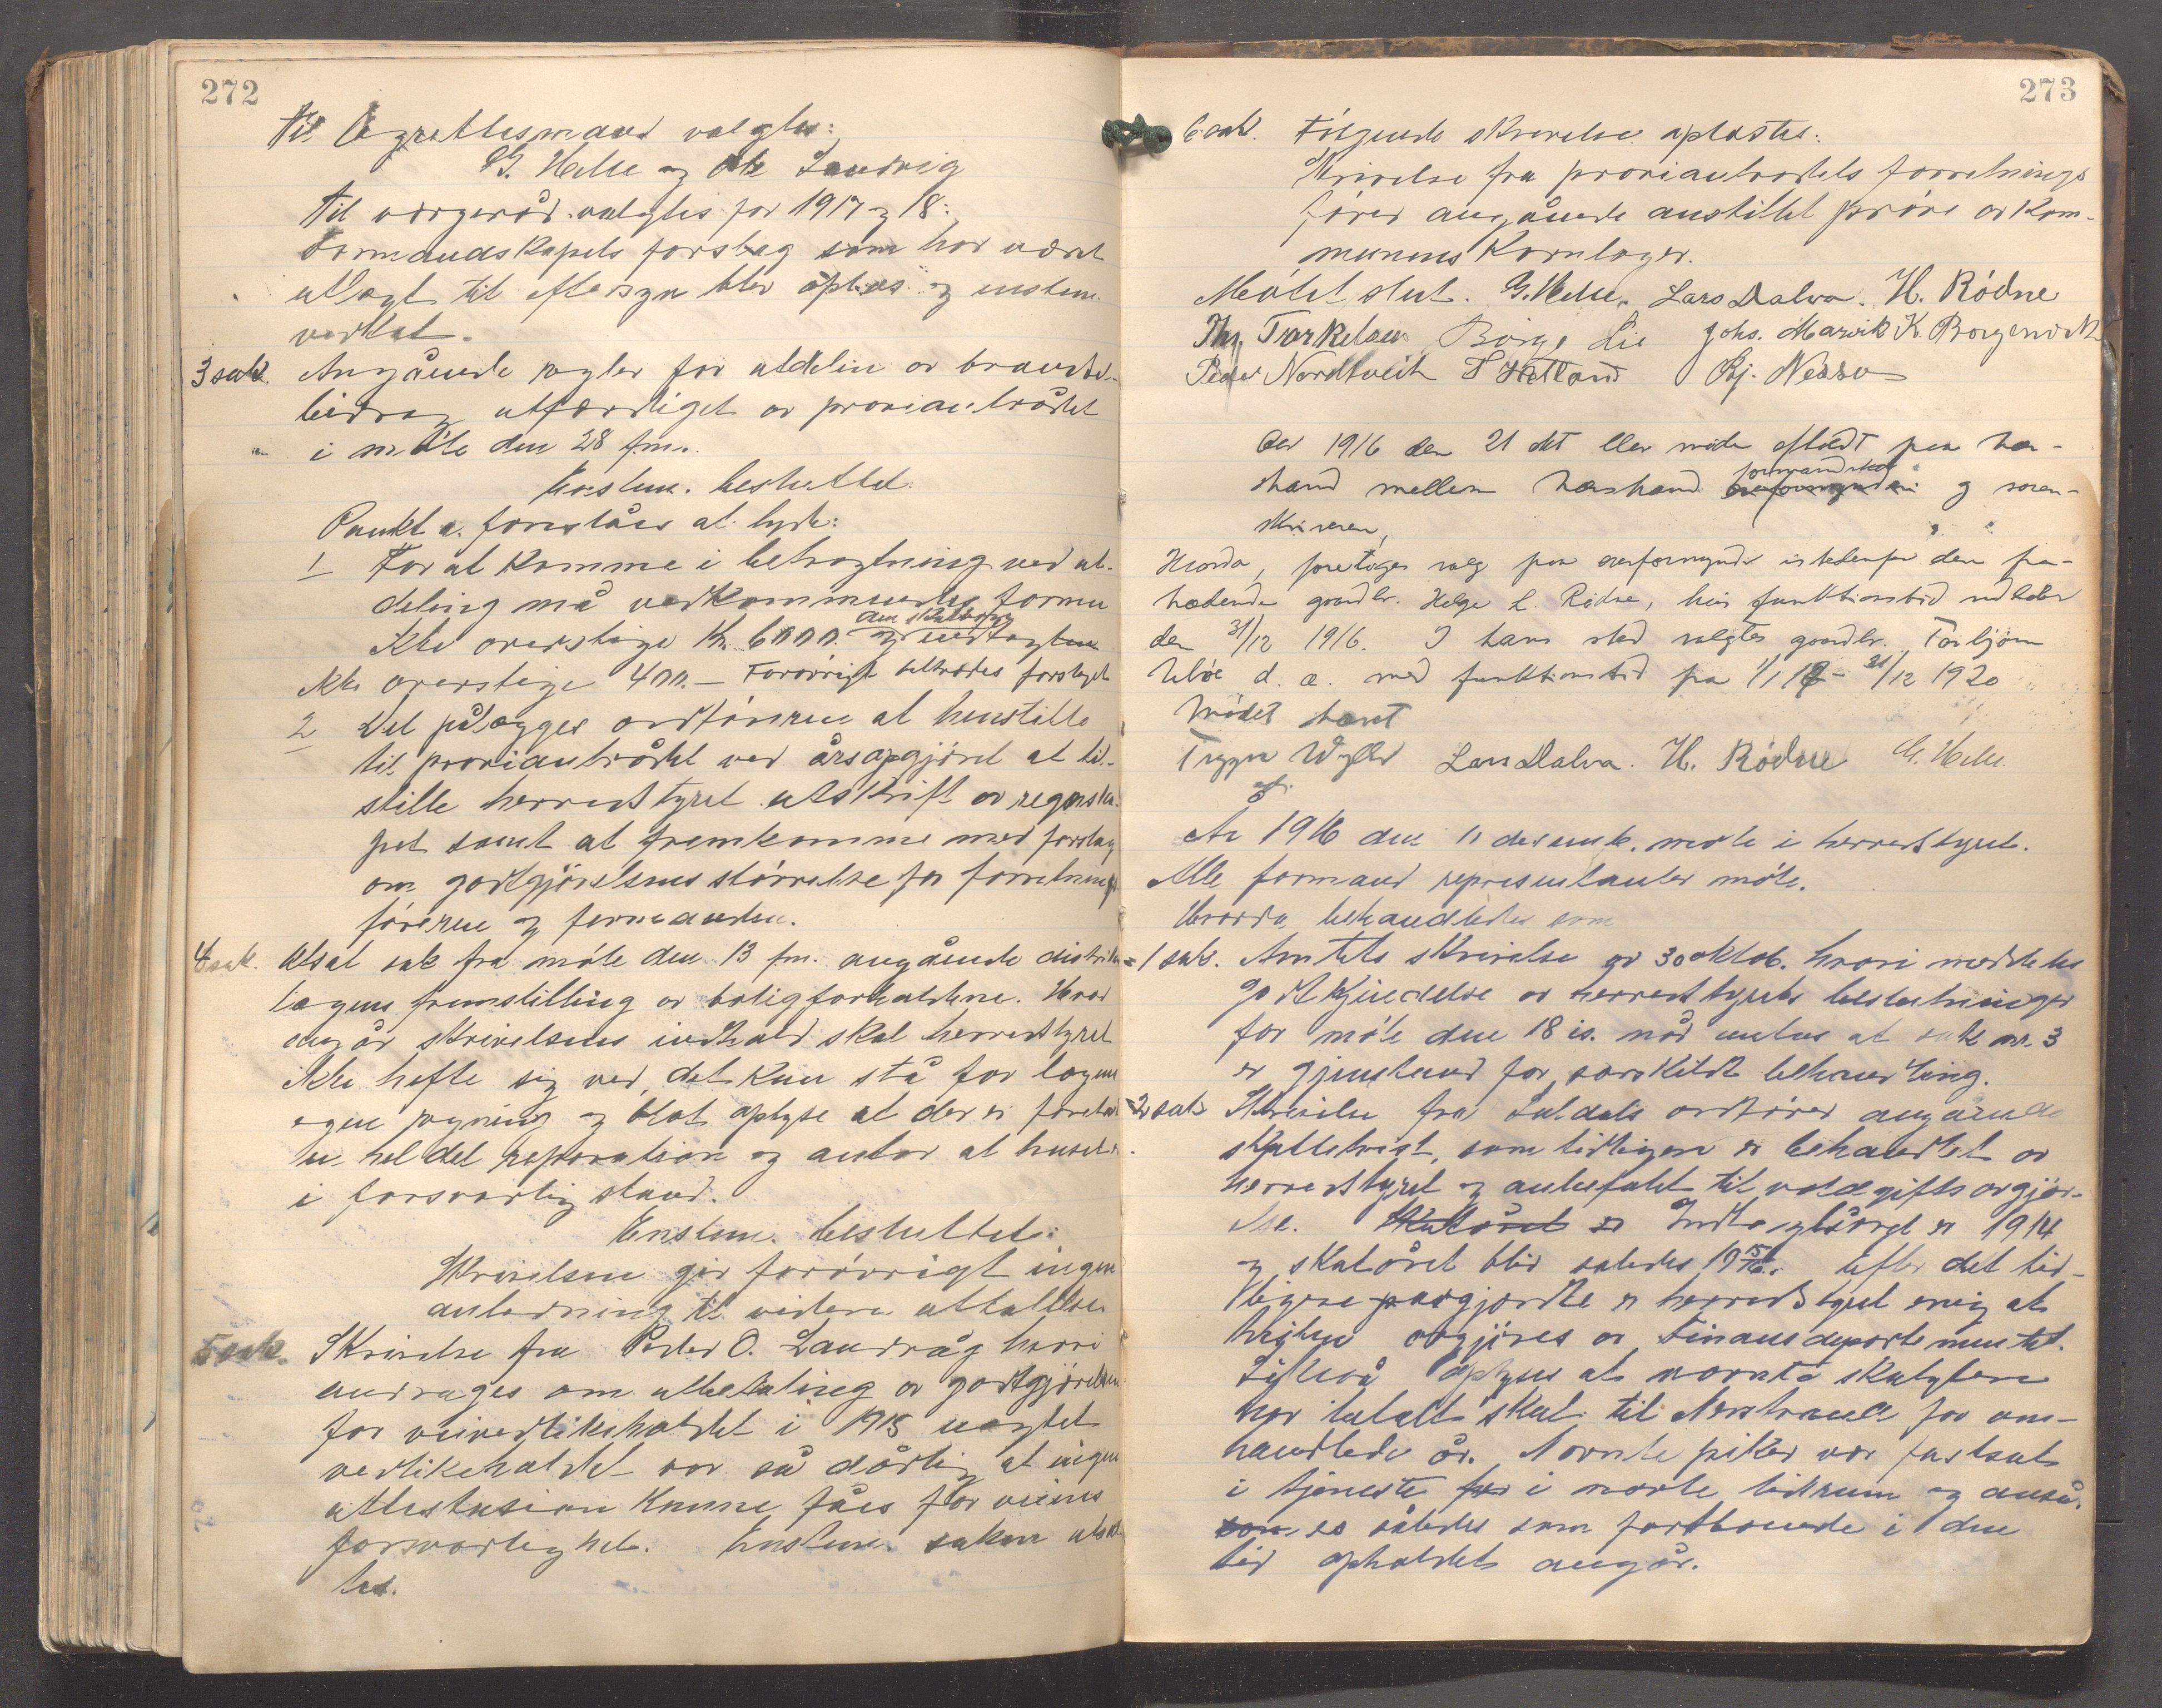 272
Til Ligretlesmænd valgtes:
G. Helle og Ole Sandvig
Til værgeråd valgtes for 1917 og 18:
Formandskapets forslag som har været
utlagt til eftersyn blev oplæst og enstem.
vedtat.
3 sak. Angående regler for utdelin av brændsel-
bidrag utfærdiget av proviantrådet
i møte den 28 f.m.
Enstem. besluttet.
Punkt a. foreslåes at lyde:
1 For at komme i betragtning ved ut-
deling må vedkommendes formu
ikke overstige Kr. 6000. og indtægten
ikke overstige 400.— Forøvrigt tiltrædes forslaget
2 Det pålægges ordføreren at henstille
til proviantrådet ved årsopgjøret at til-
stille herredstyret utskrift av regnska-
pet samt at fremkomme med forslag
om godtgjørelsens størrelse for forretnings
føreren og formanden.
4 sak. Utsat sak fra møte den 13 f.m. angående distrikts
lægens fremstilling av boligforholdene. Hvad
angår skrivelsens indhold skal herredstyret
ikke hefte sig ved, det kun stå for lægens
egen regning og blot oplyse at der er foreta
en hel del reparation og antar at huset er
i forsvarlig stand.
Enstem. besluttet:
Skrivelsen gir forøvrigt ingen
anledning til videre uttalelse.
5 sak. Skrivelse fra Peder O. Landråg hvori
andrages om utbetaling av godtgjørelsen
for veivedlikeholdet i 1915 uagtet
vedlikeholdet var så dårlig at ingen
attestasion kunne fåes for veiens
forsvarlighet. Enstem. saken utsat
tes.
273
6 sak. Følgende skrivelse oplæstes:
Skrivelse fra proviantrådets forretnings
fører angående anstillet prøve av kom-
munens kornlager.
Møtet slut. G. Helle. Lars Dalva. H. Rødne
Thj. Torkelsen Børge Lie Johs. Marvik K. Borgenvik
Peder Nordtveit T Hetland Bj. Nessø
Aar 1916 den 21 okt blev møde afholdt paa Ner-
strand mellem Nerstrand formandskap overformynderi og soren-
skriveren,
Hvorda, foretages valg paa overformynder istedenfor den fra-
trædende gaardbr. Helge L. Rødne, hvis funktionstid udløber
den 31/12 1916. I hans sted valgtes gaardbr. Torbjørn
Uløe d. æ. med funktionstid fra 1/1 17 - 31/12 1920
Mødet hævet
Trygve Wyller Lars Dalva. H. Rødne G. Helle.
År 1916 den 11 desemb. møte i herredstyret.
Alle formænd representanter møte.
Hvorda behandledes som
1 sak. Amtets skrivelse av 30 oktob. hvori meddeles
godkjendelse av herredstyrets beslutninger
for møte den 18 is. nåd untas at sak nr. 3
er gjenstand for særskildt behandling.
2 sak Skrivelse fra Suldals ordfører angående
skattetvist, som tidligere er behandlet av
herredstyret og anbefalet til voldgiftsavgjør-
else. Skatåret er Indtægtsåret er 1914
og skatåret blir således 1915/16. Efter det tid-
ligere pasgjordte er herredstyret enig at
tvisten avgjøres av Finansdepartementet.
Tillike oplyses at nævnte skatytere
har betalt skat til Nerstrand for om-
handlede år. Nævnte piker var fastsat
i tjeneste for i nævte tidsrum og anså-
som es således som fastboende i den
tid opholdet angår.